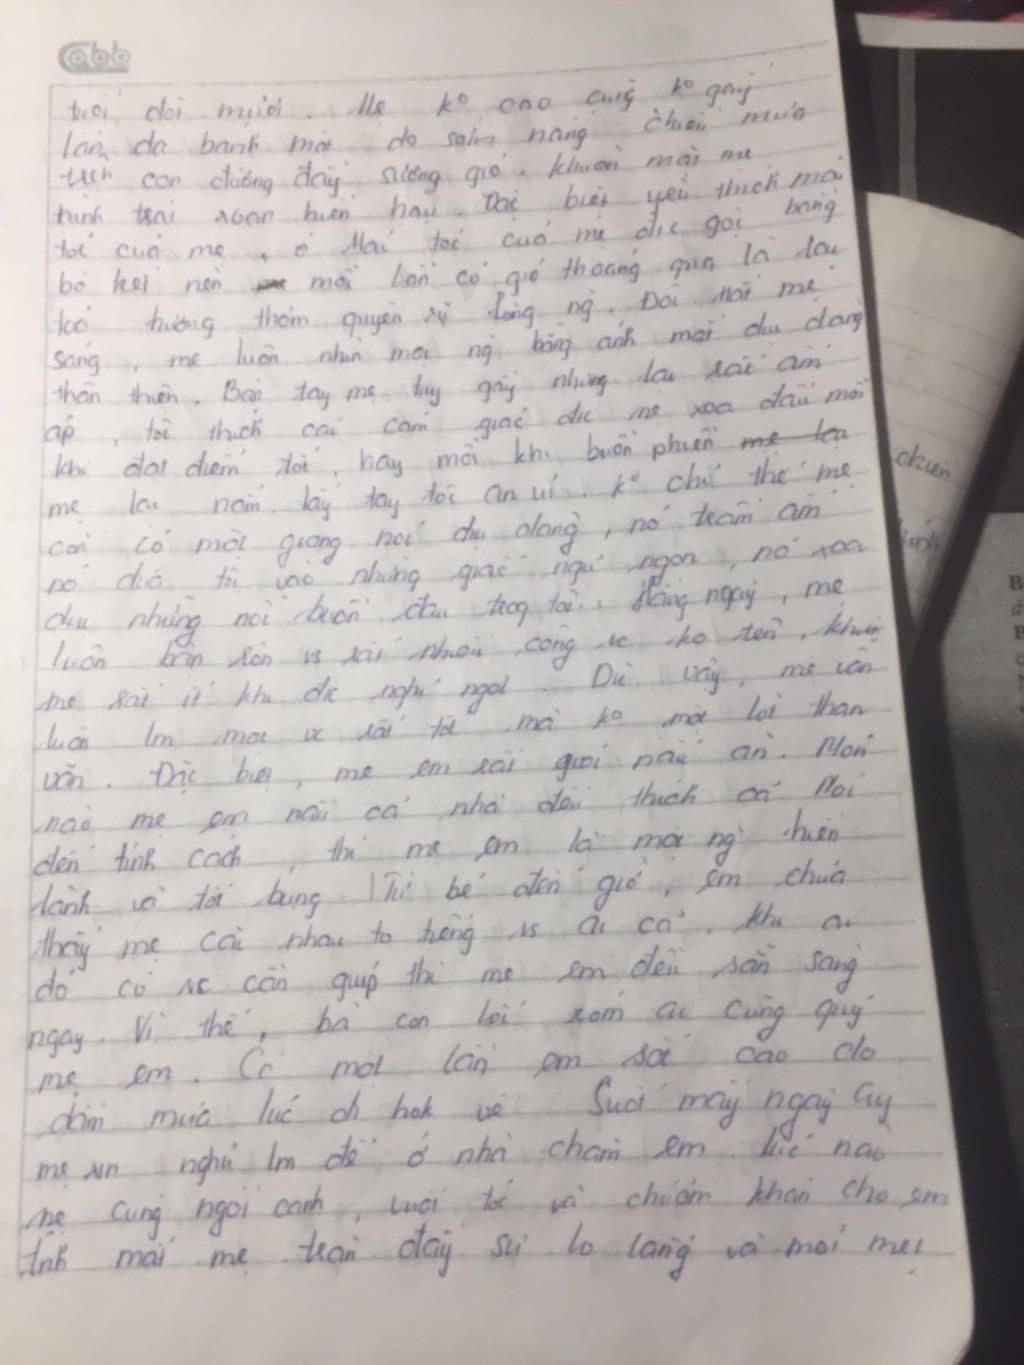 Cabb
tuổi đời mươi. Mẹ ko cao cũng ko gầy
làn da bánh mật do sớm nắng chiều mưa
trên con đường đầy sương gió. khuôn mặt mẹ
hình trái xoan hiền hậu. Đặc biệt yêu thích mái
tóc của mẹ, ở Mái tóc của mẹ đc gội bằng
bồ kết nên mỗi lần có gió thoảng qua là lại
toả hương thơm quyến rũ lòng ng. Đôi mắt mẹ
sáng, mẹ luôn nhìn mọi ng bằng ánh mắt dịu dàng
thân thiện. Bàn tay mẹ tuy gầy nhưng lại rất ấm
áp, tôi thích cái cảm giác đc mẹ xoa đầu mỗi
khi đạt điểm tốt, hay mỗi khi buồn phiền mẹ lại
mẹ lại nắm lấy tay tôi an ủi. ko chỉ thế mẹ
còn có một giọng nói dịu dàng, nó trầm ấm
nó đưa tôi vào những giấc ngủ ngon, nó xoa
dịu những nỗi buồn đau trog tôi. Hằng ngày, mẹ
luôn bận rộn vs rất nhiều công vc ko tên, khiến
mẹ rất ít khi đc nghỉ ngơi. Dù vậy, mẹ vẫn
luôn lm mọi vc rất tốt mà ko một lời than
vãn. Đặc biệt, mẹ em rất giỏi nấu ăn. Món
nào mẹ em nấu cả nhà đều thích cả Nói
đến tính cách, thì mẹ em là một ng hiền
lành và tốt bụng Từ bé đến giờ, em chưa
thấy mẹ cãi nhau to tiếng vs ai cả. khi ai
đó có vc cần giúp thì mẹ em đều sẵn sàng
ngay. Vì thế, bà con lối xóm ai cũng quý
mẹ em. Có một lần em sốt cao do
dầm mưa lúc đi hok về Suốt mấy ngày ấy
mẹ xin nghỉ lm để ở nhà chăm em. lúc nào
mẹ cũng ngồi cạnh, vuốt tóc và chườm khăn cho em
ánh mắt mẹ tràn đầy sự lo lắng và mỏi mệt
chiến